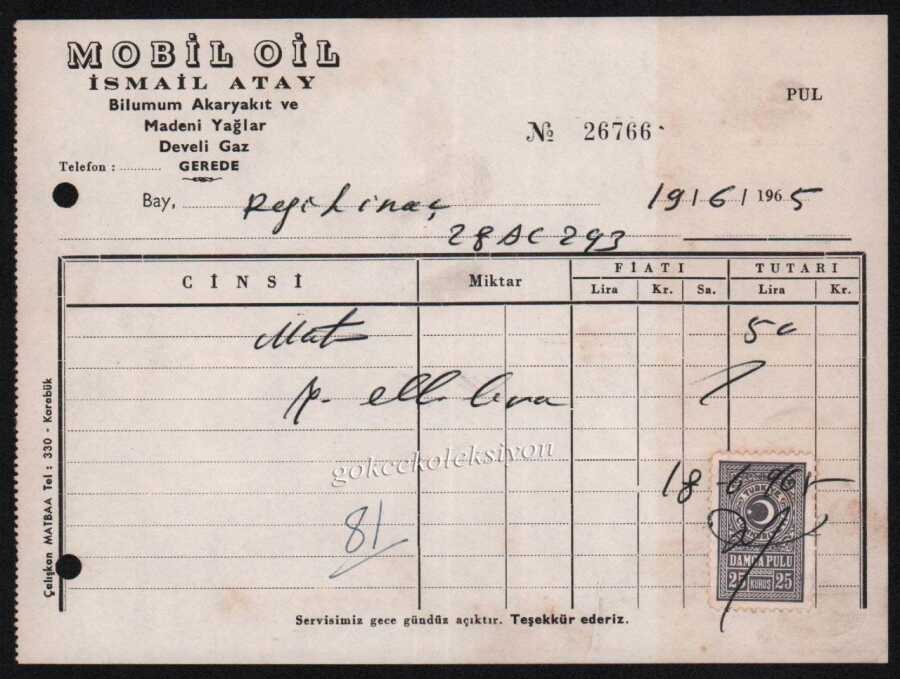 MOBİL OİL
İSMAİL ATAY
Bilumum Akaryakıt ve
Madeni Yağlar
Develi Gaz
Telefon : ............ GEREDE
PUL
№ 26766
Bay, 19/6/1965
28 AC 293
CİNSİ Miktar FİATI TUTARI
Lira Kr. Sa. Lira Kr.
50
elli lira
gokcekoleksiyon
18-6-965
81
TÜRKİYE
DAMGA PULU
25 KURUŞ 25
Çalışkan MATBAA Tel : 330 - Karabük
Servisimiz gece gündüz açıktır. Teşekkür ederiz.